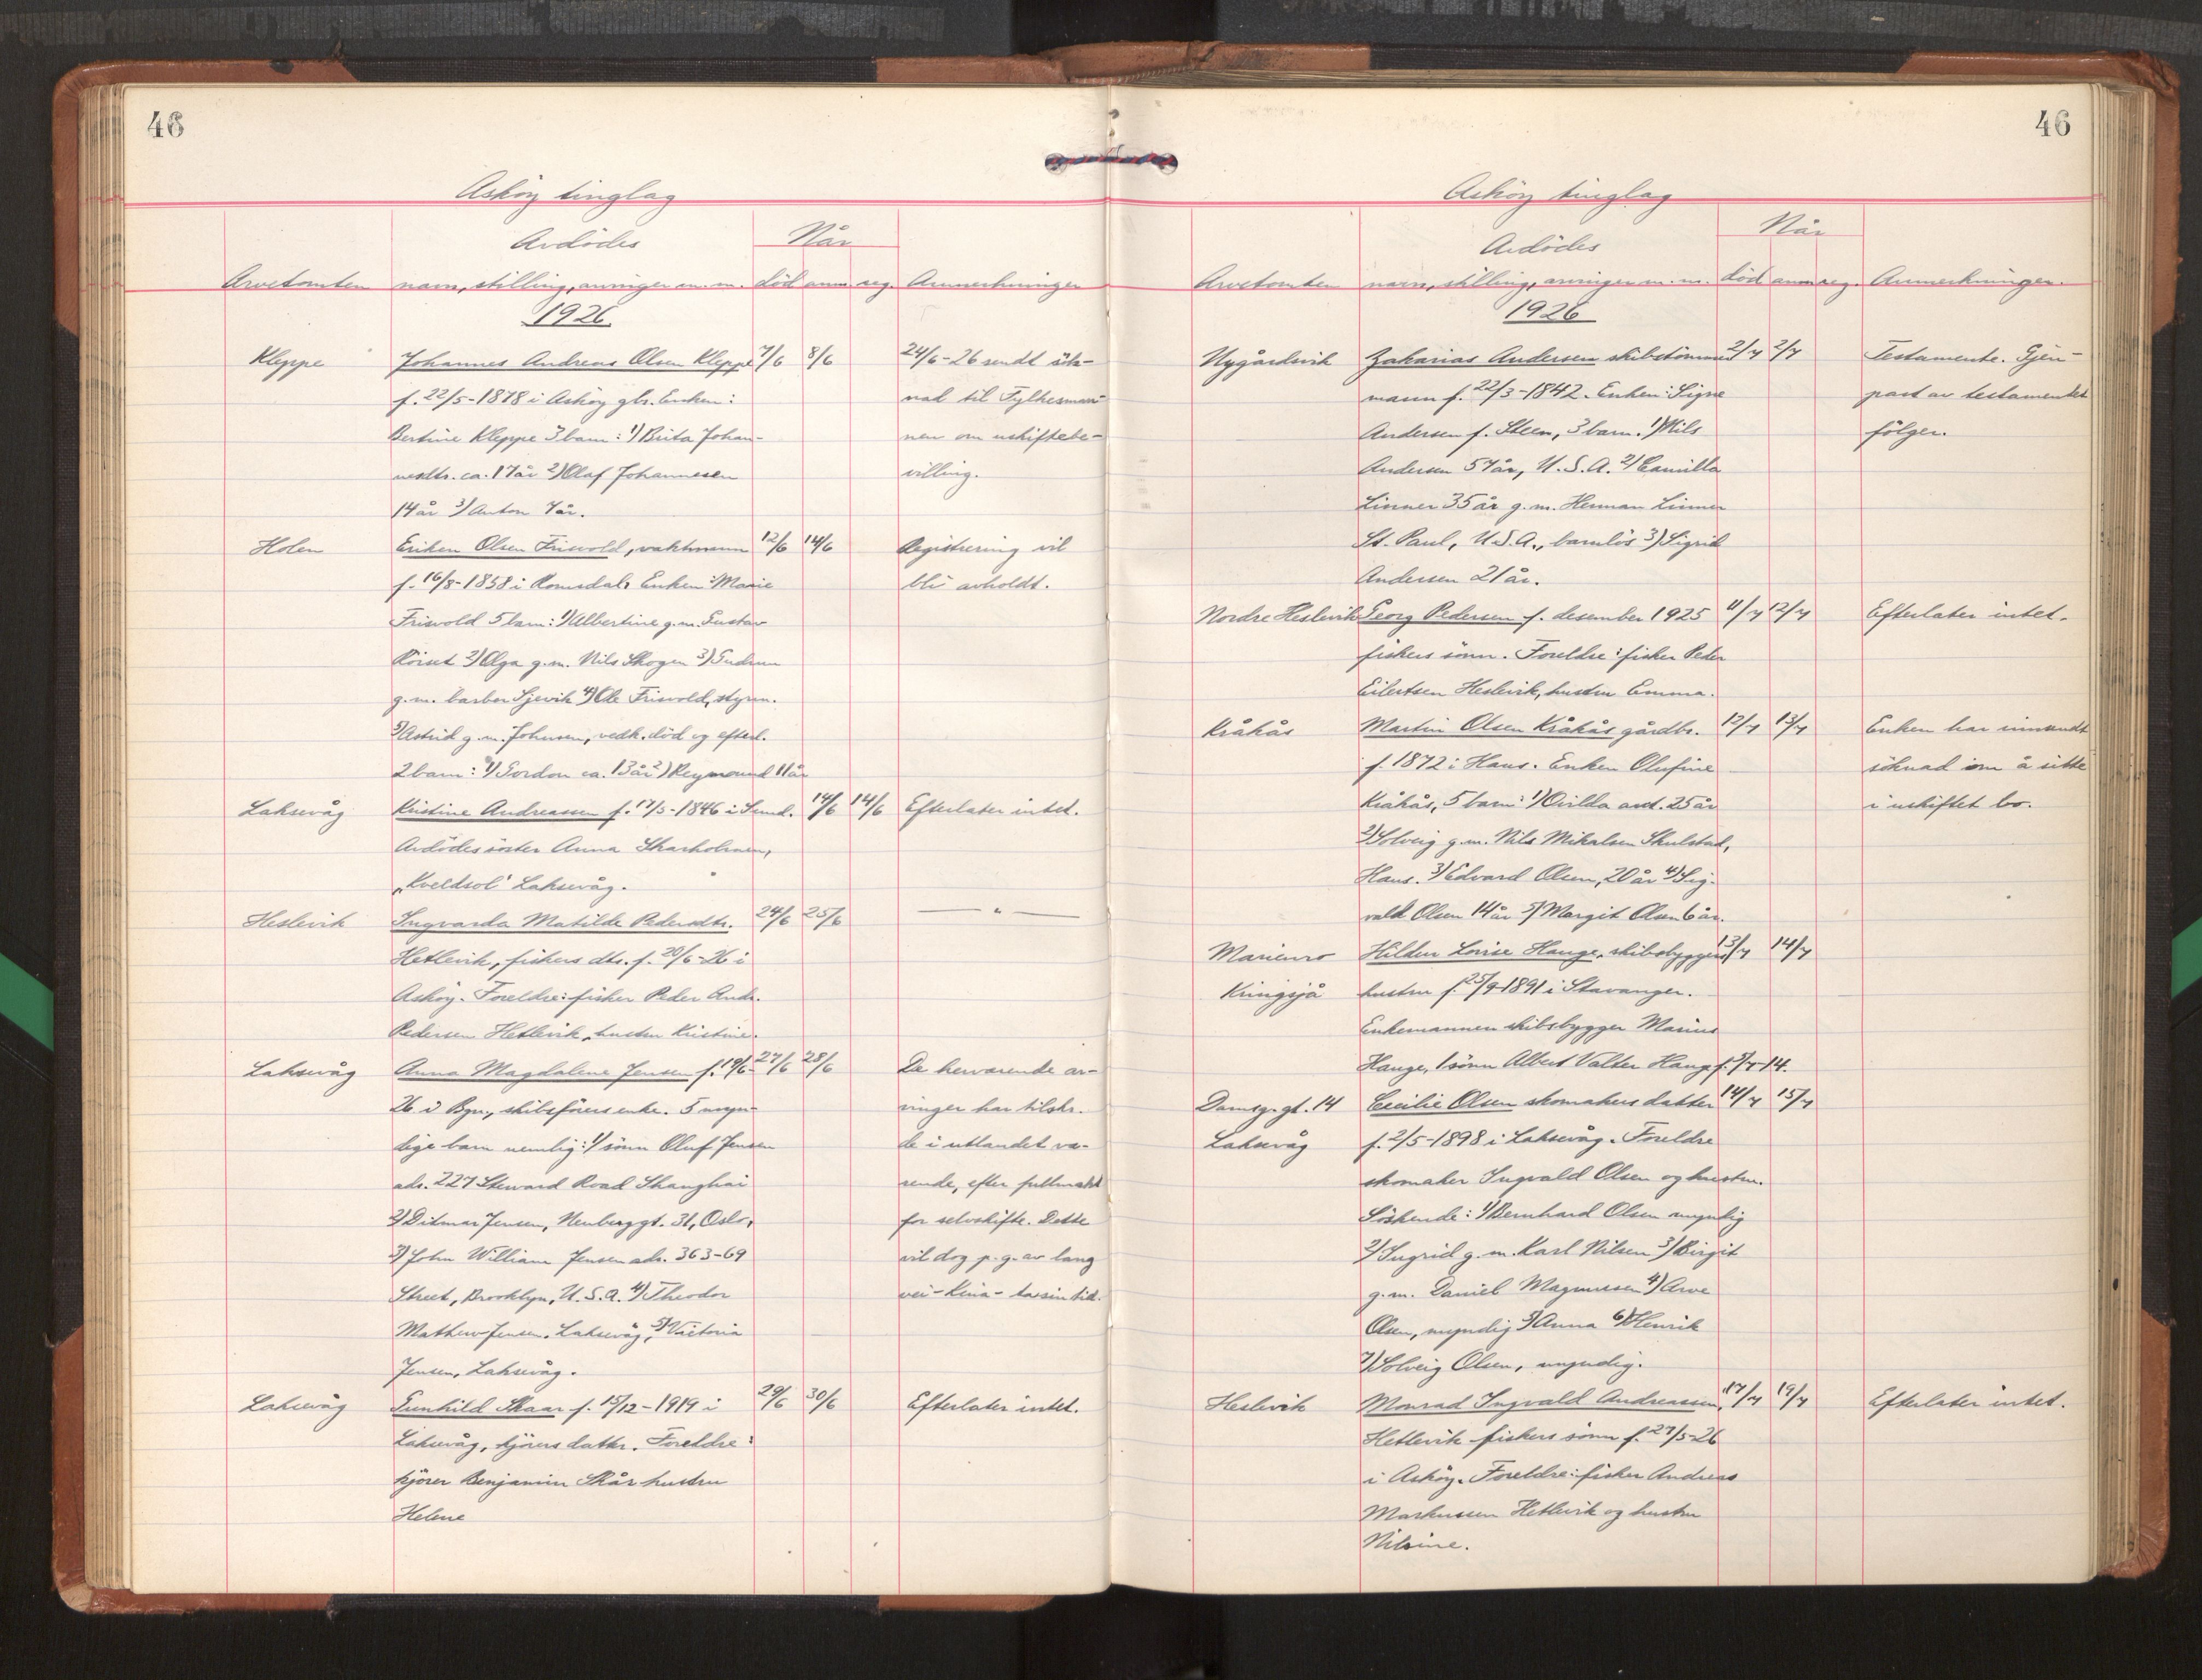 46
Askøy tinglag
Avdödes
Når
Arvetomten navn, stilling, arvinger m.m. död anm reg. Anmerkninger
1926
Kleppe Johannes Andreas Olsen Kleppe 7/6 8/6 24/6-26 sendt søk-
f. 22/5-1878 i Askøy gbr. Enken: nad til Fylkesman-
Bertine Kleppe 3 barn: 1) Brita Johan- nen om uskiftebe-
nesdtr. ca. 17 år 2) Olaf Johannesen villing.
14 år 3) Anton 7 år.
Holen Eriken Olsen Frisvold, vaktmann 12/6 14/6 Registrering vil
f. 16/8-1858 i Romsdal. Enken: Marie bli avholdt.
Frisvold 5 barn: 1) Albertine g.m. Gustav
2) Olga g.m. Nils Skogen 3) Gudrun
g.m. barber Gjevik 4) Ole Frisvold, styrm.
5) Astrid g.m. Johnsen, vedk. död og efterl.
2 barn: 1) Gordon ca. 13 år 2) Reymound 11 år
Laksevåg Kristine Andreassen f. 17/3-1846 i Sund. 14/6 14/6 Efterlater intet.
Avdödes söster Anna Skarholmen,
"Kveldsol" Laksevåg.
Heslevik Ingvarda Matilde Pedersdtr. 24/6 25/6 — " —
Hetlevik, fiskers dtr. f. 20/6-26 i
Askøy. Foreldre: fisker Peder Andr.
Pedersen Hetlevik, hustru Kristine.
Laksevåg Anna Magdalene Jensen f. 19/6- 27/6 28/6 De herværende ar-
26 i Bgn., skibsförers enke. 5 myn- vinger har tilskr.
dige barn nemlig: 1) sönn Oluf Jensen de i utlandet væ-
adr. 227 Steward Road Shanghai rende, efter fullmakt
2) Ditmar Jensen, Neuberggt. 31, Oslo, for selvskifte. Dette
3) John William Jensen adr. 363-69 vil dog p.g. av lang
Street, Brooklyn, U.S.A. 4) Theodor vei - Kina - ta sin tid.
Mathew Jensen, Laksevåg, 5) Victoria
Jensen, Laksevåg.
Laksevåg Gunhild Skaar f. 15/12-1919 i 29/6 30/6 Efterlater intet.
Laksevåg, kjörers datter. Foreldre:
kjörer Benjamin Skår hustru
Helene
46
Askøy tinglag
Avdödes
Når
Arvetomten navn, stilling, arvinger m.m. död anm reg. Anmerkninger.
1926
Nygårdsvik Zakarias Andersen skibstömmer- 2/7 2/7 Testamente. Gjen-
mann f. 22/3-1842. Enken: Signe part av testamentet
Andersen f. Steen, 3 barn. 1) Nils fölger.
Andersen 57 år, U.S.A. 2) Camilla
Linner 35 år g.m. Herman Linner
St. Paul, U.S.A., barnlös 3) Sigrid
Andersen 21 år.
Nordre Heslevik Georg Pedersen f. desember 1925 11/7 12/7 Efterlater intet.
fiskers sönn. Foreldre: fisker Peder
Eilertsen Heslevik, hustru Emma.
Kråkås Martin Olsen Kråkås gårdbr. 12/7 13/7 Enken har innsendt
f. 1872 i Haus. Enken Olufine söknad om å sitte
Kråkås, 5 barn: 1) ant. 25 år i uskiftet bo.
2) Solveig g.m. Nils Mikalsen Skulstad,
Haus. 3) Edvard Olsen, 20 år 4) Sig-
vald Olsen 14 år 5) Margit Olsen 6 år.
Marienro Hildur Lovise Hauge, skibsbyggers 13/7 14/7
Kringsjå hustru f. 25/9-1891 i Stavanger.
Enkemannen skibsbygger Marius
Hauge, 1 sönn Albert Valter Hauge f. 3/7-14.
Damsg.gt. 14 Cecilie Olsen skomakers datter 14/7 15/7
Laksevåg f. 2/5-1898 i Laksevåg. Foreldre
skomaker Ingvald Olsen og hustru.
Söskende: 1) Bernhard Olsen myndig
2) Ingrid g.m. Karl Nilsen 3) Birgit
g.m. Daniel Magnussen 4) Arve
Olsen, myndig 5) Anna 6) Henrik
7) Solveig Olsen, umyndig.
Heslevik Monrad Ingvald Andreassen, 17/7 19/7 Efterlater intet.
Hetlevik fiskers sönn f. 27/5-26
i Askøy. Foreldre: fisker Andreas
Markussen Hetlevik og hustru
Nilsine.